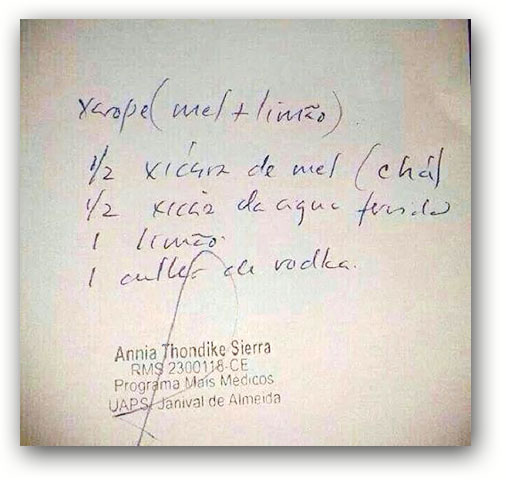 xarope (mel + limão)
1/2 xícara de mel (chá)
1/2 xicar da agua fervida
1 limão
1 culher de vodka.
Annia Thondike Sierra
RMS 2300118-CE
Programa Mais Medicos
UAPS. Janival de Almeida